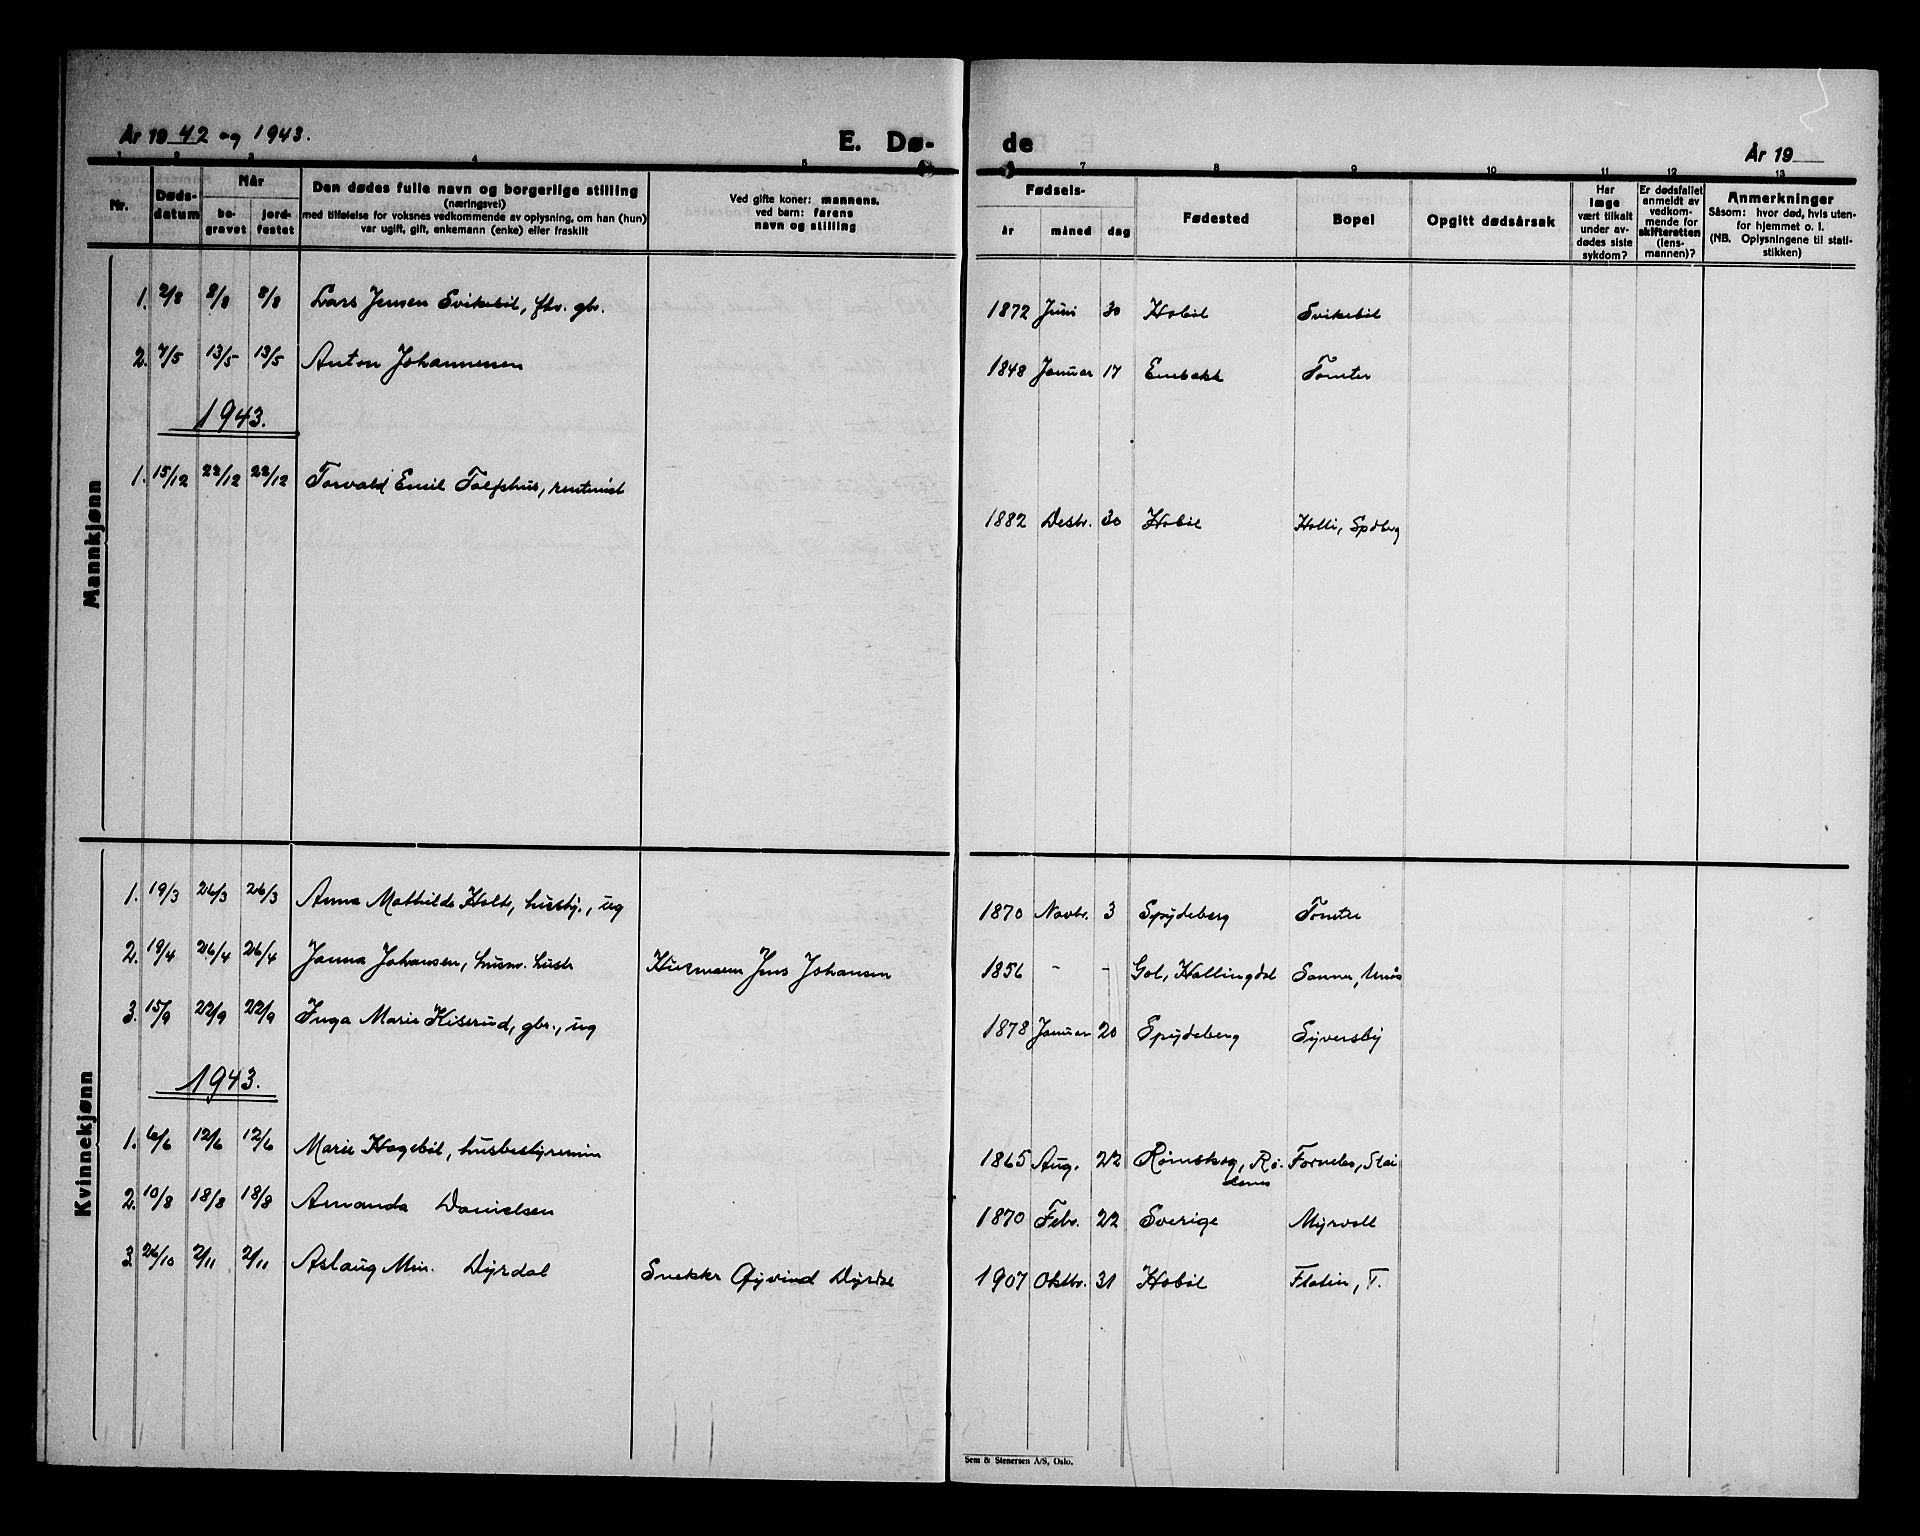 År 1942 og 1943.
E. Dø-
de
År 19
1 2 3 4 5 7 8 9 10 11 12 13
Nr.
Døds-
datum
Når
be-
gravet
jord-
festet
Den dødes fulle navn og borgerlige stilling
(næringsvei)
med tilføielse for voksnes vedkommende av oplysning, om han (hun)
var ugift, gift, enkemann (enke) eller fraskilt
Ved gifte koner: mannens,
ved barn: farens
navn og stilling
Fødsels-
år måned dag
Fødested
Bopel
Opgitt dødsårsak
Har
læge
vært tilkalt
under av-
dødes siste
sykdom?
Er dødsfallet
anmeldt av
vedkom-
mende for
skifteretten
(lens-
mannen)?
Anmerkninger
Såsom: hvor død, hvis uten-
for hjemmet o. l.
(NB. Oplysningene til stati-
stikken)
Mannkjønn
1. 2/8 8/8 8/8 Lars Jensen Svikebøl, fhv. gbr. 1872 Juni 30 Hobøl Svikebøl
2. 7/5 13/5 13/5 Anton Johannessen 1848 Januar 17 Enebakk Tomter
1943.
1. 15/12 22/12 22/12 Torvald Emil Tolfshus, rentenist 1882 Desbr. 30 Hobøl Holli, Spdbrg
Kvinnekjønn
1. 19/3 26/3 26/3 Anna Mathilde Holt, husbj., ug 1870 Novbr. 3 Spydeberg Tomter
2. 19/4 26/4 26/4 Janna Johansen, husm. hustr Husmann Jens Johansen 1856 - - Gol, Hallingdal Sanner,
3. 15/9 22/9 22/9 Inga Marie Kiserud, gbr., ug 1878 Januar 20 Spydeberg Syversby
1943.
1. 6/6 12/6 12/6 Marie Hagebøl, husbestyrerinne 1865 Aug. 22 Rømskog, Rø- Fornebo,
denes
2. 10/8 18/8 18/8 Amanda Danielsen 1870 Febr. 22 Sverige Myrvoll
3. 26/10 2/11 2/11 Aslaug Mrn. Dyrdal Snekker Øyvind Dyrdal 1907 Oktbr. 31 Hobøl Flatin, T.
Sem & Stenersen A/S, Oslo.